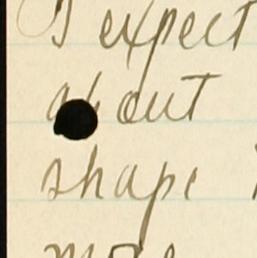 I expect
about
shape